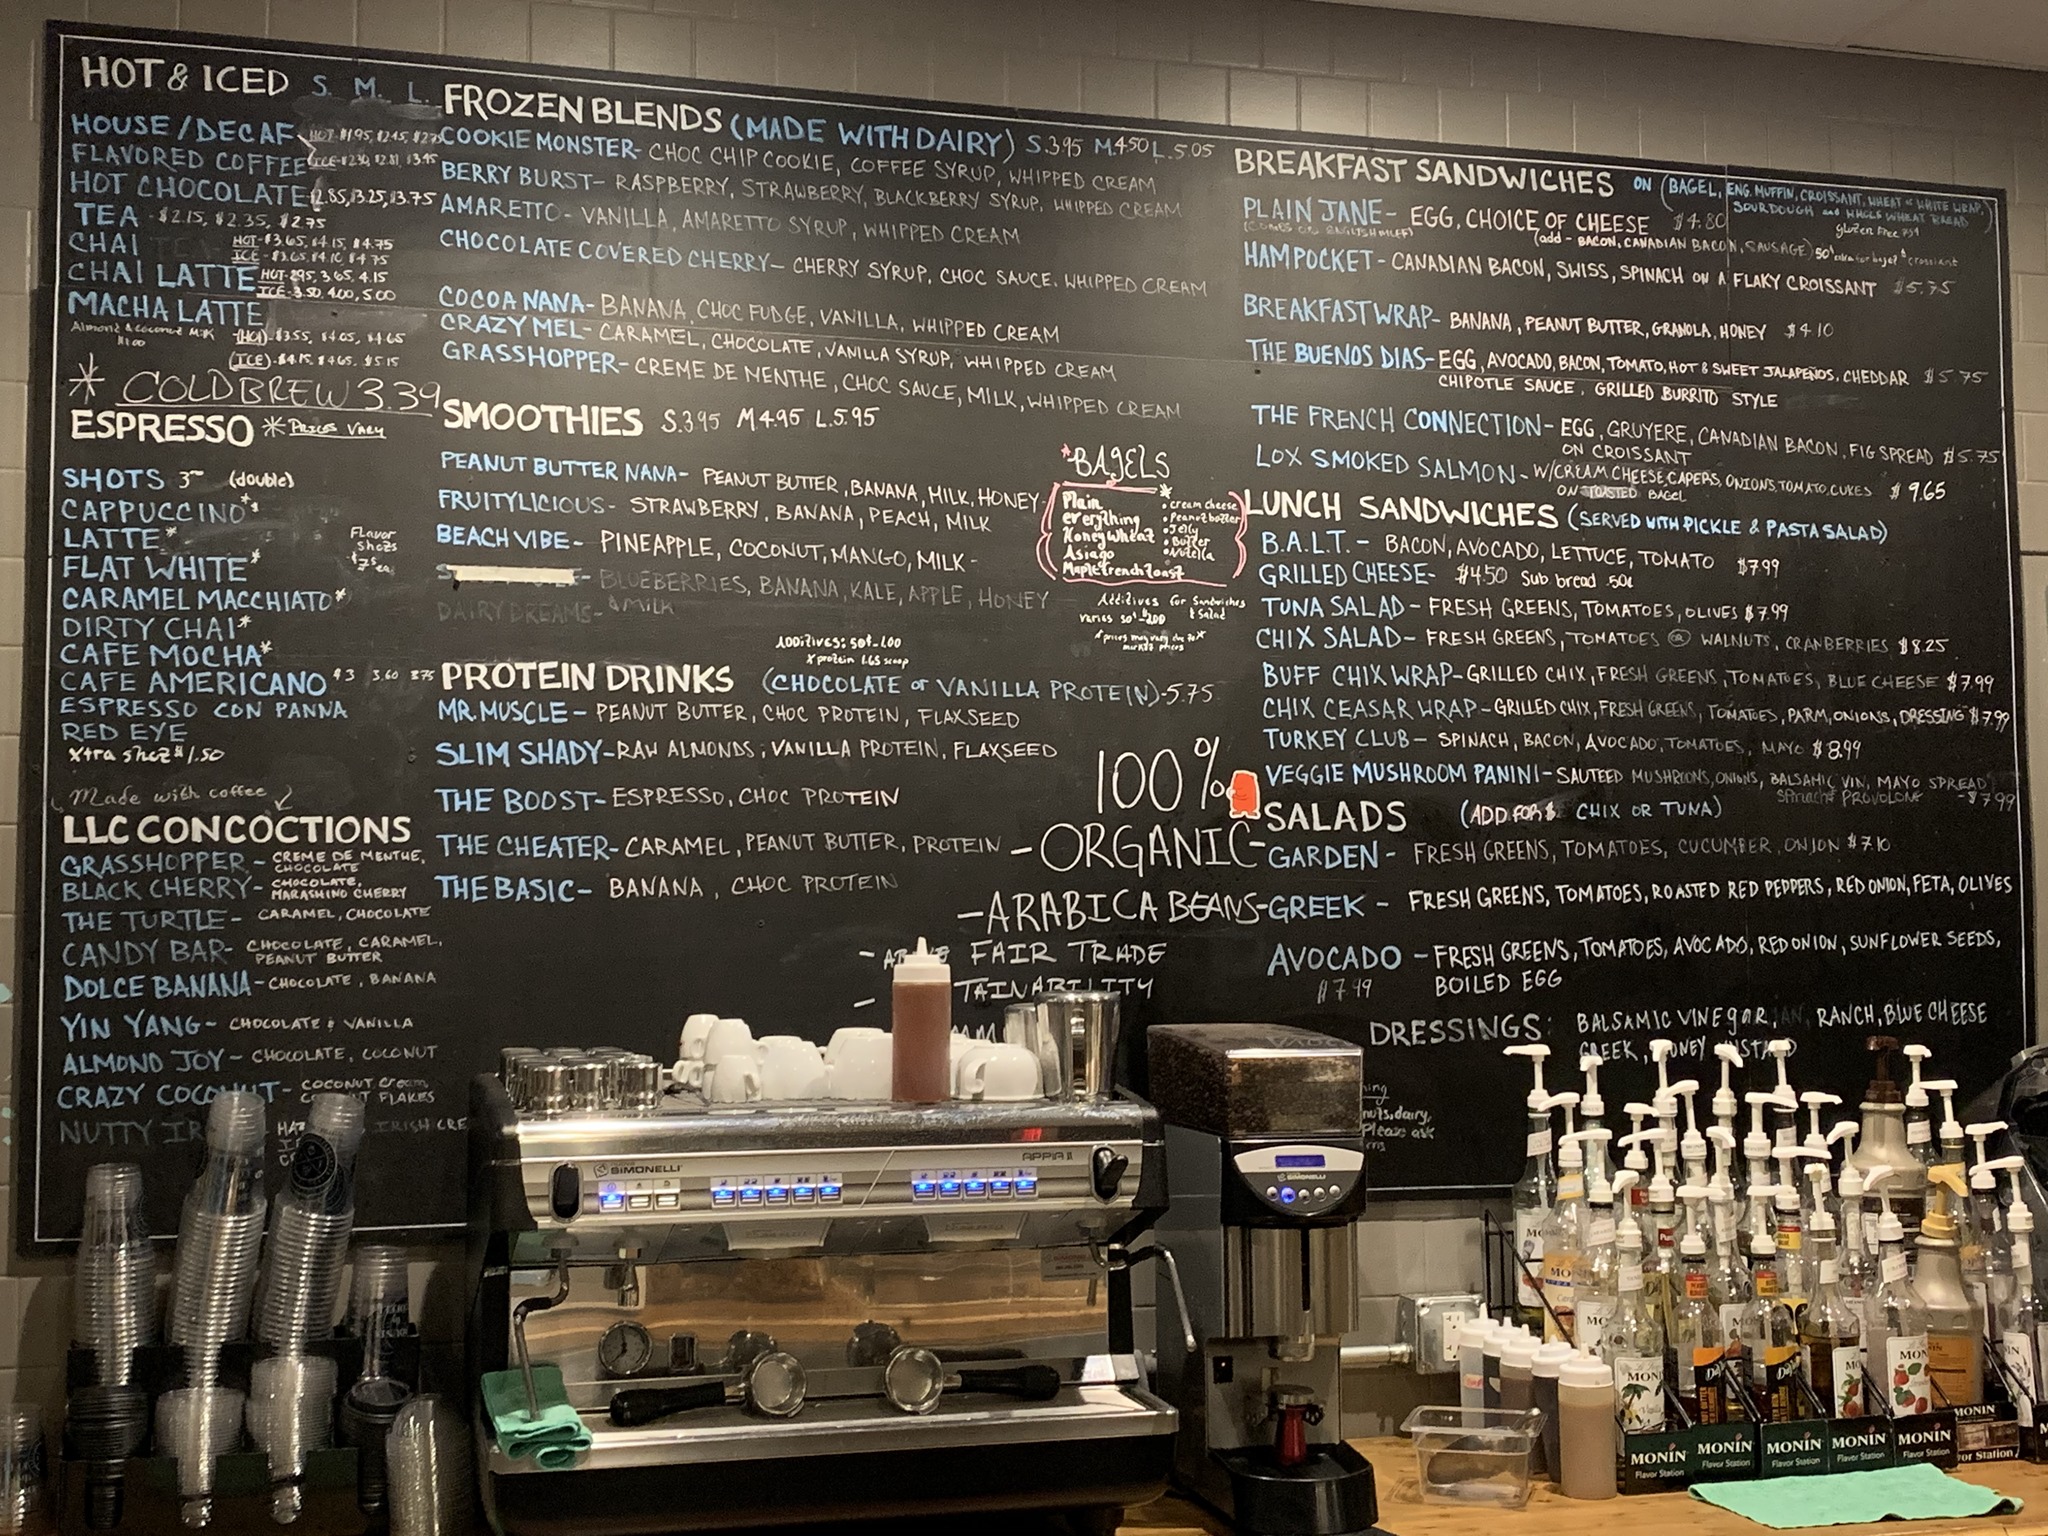 HOT & ICED S. M. L.
HOUSE/DECAF HOT-$1.95, $2.45, $2.75
FLAVORED COFFEE ICE-$2.30, $2.81, $3.45
HOT CHOCOLATE-$2.85, $3.25, $3.75
TEA -$2.15, $2.35, $2.75
CHAI HOT-$3.65, $4.15, $4.75
ICE-$3.65, $4.10 $4.75
CHAI LATTE HOT-295, 3.65, 4.15
ICE-3.50, 4.00, 5.00
MACHA LATTE
Almond & coconut Milk -(HOT)-$3.55, $4.05, $4.65
(ICE)-$4.15, $4.65, $5.15
* COLDBREW 3.39
ESPRESSO * Prices Vary
SHOTS 3 (double)
CAPPUCCINO*
LATTE*
Flavor shots
FLAT WHITE*
CARAMEL MACCHIATO*
DIRTY CHAI*
CAFE MOCHA*
CAFE AMERICANO $3 3.60 3.75
ESPRESSO CON PANNA
RED EYE
Xtra shot $1.50
Made with coffee
LLC CONCOCTIONS
GRASSHOPPER - CREME DE MENTHE,
CHOCOLATE
BLACK CHERRY- CHOCOLATE,
MARASHINO CHERRY
THE TURTLE- CARAMEL, CHOCOLATE
CANDY BAR- CHOCOLATE, CARAMEL,
PEANUT BUTTER
DOLCE BANANA- CHOCOLATE, BANANA
YIN YANG- CHOCOLATE & VANILLA
ALMOND JOY- CHOCOLATE, COCONUT
CRAZY COCONUT- COCONUT Cream
COCONUT FLAKES
NUTTY IR
IRISH CRE
FROZEN BLENDS (MADE WITH DAIRY) S.3.95 M.4.50 L.5.05
COOKIE MONSTER- CHOC CHIP COOKIE, COFFEE SYRUP, WHIPPED CREAM
BERRY BURST- RASPBERRY, STRAWBERRY, BLACKBERRY SYRUP, WHIPPED CREAM
AMARETTO- VANILLA, AMARETTO SYRUP, WHIPPED CREAM
CHOCOLATE COVERED CHERRY- CHERRY SYRUP, CHOC SAUCE, WHIPPED CREAM
COCOA NANA- BANANA, CHOC FUDGE, VANILLA, WHIPPED CREAM
CRAZY MEL- CARAMEL, CHOCOLATE, VANILLA SYRUP, WHIPPED CREAM
GRASSHOPPER- CREME DE MENTHE, CHOC SAUCE, MILK, WHIPPED CREAM
SMOOTHIES S.3.95 M 4.95 L 5.95
PEANUT BUTTER NANA- PEANUT BUTTER, BANANA, MILK, HONEY
FRUITYLICIOUS- STRAWBERRY, BANANA, PEACH, MILK
BEACH VIBE- PINEAPPLE, COCONUT, MANGO, MILK-
BLUEBERRIES, BANANA, KALE, APPLE, HONEY
& MILK
DAIRY DREAMS-
Additives: 50¢-1.00
* protein 1.65 scoop
PROTEIN DRINKS (CHOCOLATE or VANILLA PROTEIN)-5.75
MR. MUSCLE- PEANUT BUTTER, CHOC PROTEIN, FLAXSEED
SLIM SHADY-RAW ALMONDS, VANILLA PROTEIN, FLAXSEED
THE BOOST-ESPRESSO, CHOC PROTEIN
THE CHEATER-CARAMEL, PEANUT BUTTER, PROTEIN
THE BASIC- BANANA, CHOC PROTEIN
*BAGELS
Plain
everything
Honeywheat
Asiago
Maple french toast
• cream cheese
• Peanut butter
• Jelly
• Butter
• Nutella
Additives for Sandwiches
& Salad
varies 50¢-$2.00
*prices may vary due to*
market prices
100%
- ORGANIC-
-ARABICA BEANS-
FAIR TRADE
TAINABILITY
BREAKFAST SANDWICHES ON (BAGEL, ENG. MUFFIN, CROISSANT, WHEAT or WHITE WRAP,
SOURDOUGH and WHOLE WHEAT BREAD)
PLAIN JANE- EGG, CHOICE OF CHEESE $4.80
(COMES ON ENGLISH MUFF)
(add - BACON, CANADIAN BACON, SAUSAGE) 50¢ extra for bagel & croissant
HAM POCKET- CANADIAN BACON, SWISS, SPINACH ON A FLAKY CROISSANT $5.75
BREAKFAST WRAP- BANANA, PEANUT BUTTER, GRANOLA, HONEY $4.10
THE BUENOS DIAS-EGG, AVOCADO, BACON, TOMATO, HOT & SWEET JALAPEÑOS, CHEDDAR $5.75
CHIPOTLE SAUCE, GRILLED BURRITO STYLE
THE FRENCH CONNECTION- EGG, GRUYERE, CANADIAN BACON, FIG SPREAD $5.75
ON CROISSANT
LOX SMOKED SALMON- W/CREAM CHEESE, CAPERS, ONIONS, TOMATO, CUKES $9.65
ON TOASTED BAGEL
LUNCH SANDWICHES (SERVED WITH PICKLE & PASTA SALAD)
B.A.L.T.- BACON, AVOCADO, LETTUCE, TOMATO $7.99
GRILLED CHEESE- $4.50 Sub bread .50¢
TUNA SALAD- FRESH GREENS, TOMATOES, OLIVES $7.99
CHIX SALAD- FRESH GREENS, TOMATOES or WALNUTS, CRANBERRIES $8.25
BUFF CHIX WRAP-GRILLED CHIX, FRESH GREENS, TOMATOES, BLUE CHEESE $7.99
CHIX CEASAR WRAP-GRILLED CHIX, FRESH GREENS, TOMATOES, PARM, ONIONS, DRESSING $7.99
TURKEY CLUB- SPINACH, BACON, AVOCADO, TOMATOES, MAYO $8.99
VEGGIE MUSHROOM PANINI-SAUTEED MUSHROOMS, ONIONS, BALSAMIC VIN, MAYO SPREAD
Spinach PROVOLONE -$7.99
SALADS (ADD FOR $ CHIX OR TUNA)
GARDEN- FRESH GREENS, TOMATOES, CUCUMBER, ONION $7.10
GREEK - FRESH GREENS, TOMATOES, ROASTED RED PEPPERS, RED ONION, FETA, OLIVES
AVOCADO - FRESH GREENS, TOMATOES, AVOCADO, RED ONION, SUNFLOWER SEEDS,
$7.99 BOILED EGG
DRESSINGS: BALSAMIC VINEgaR, RANCH, BLUE CHEESE
GREEK, HONEY MUSTARD
nuts, dairy,
Please ask
SIMONELLI
APPIA II
MONIN
Flavor Station
MONIN
Flavor Station
MONIN
Flavor Station
MONIN
Flavor Station
MONIN
Flavor Station
MONIN
vor Station